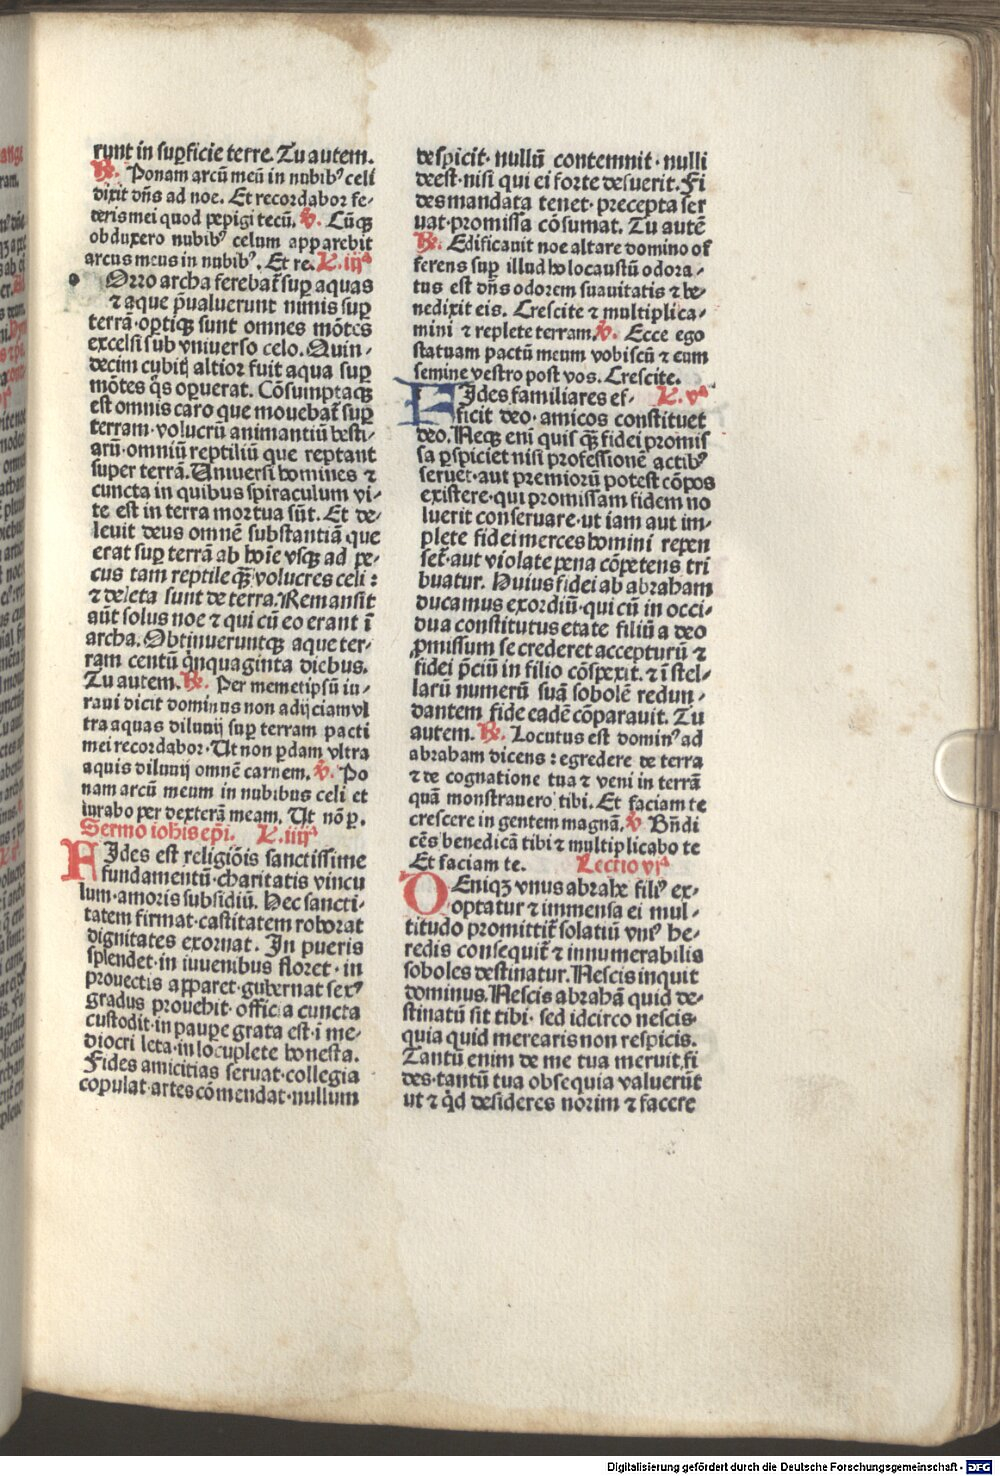 runt in sup̱ficie terre. Tu autem.
R̃. Ponam arcũ meũ in nubibꝰ celi
dixit dñs ad noe. Et recordabor fe-
deris mei quod pepigi tecũ. v̄. Cũqꝫ
obduxero nubibꝰ celum apparebit
arcus meus in nubibꝰ. Et re. L. iijᵃ
Orro archa ferebat᷑ sup̱ aquas
⁊ aque p̄ualuerunt nimis sup̱
terrã·op̱tiqꝫ sunt omnes mõtes
excelsi sub vniuerso celo. Quin-
decim cubitꝭ altior fuit aqua sup̱
mõtes q̃s op̱uerat. Cõsumptaqꝫ
est omnis caro que mouebat᷑ sup̱
terram·volucrũ animantiũ besti-
arũ·omniũ reptiliũ que reptant
super terrã. Uniuersi homines ⁊
cuncta in quibus spiraculum vi-
te est in terra mortua sũt. Et de-
leuit deus omnẽ substantiã que
erat sup̱ terrã ab hoĩe vsqꝫ ad pe-
cus tam reptile qꝫ̃ volucres celi:
⁊ deleta sunt de terra. Remansit
aũt solus noe ⁊ qui cũ eo erant ĩ
archa. Obtinueruntqꝫ aque ter-
ram centũ q̃nquaginta diebus.
Tu autem. R̃. Per memetipsũ iu-
raui dicit dominus non adijciam vl
tra aquas diluuij sup̱ terram pacti
mei recordabor·Ut non p̱dam vltra
aquis diluuij omnẽ carnem. v̄. Po
nam arcũ meum in nubibus celi et
iurabo per dexterã meam. Ut nõ p̱.
Sermo iohis ep̄i. L. iiijᵃ
FIdes est religiõis sanctissime
fundamentũ·charitatis vincu
lum·amoris subsidiũ. Hec sancti-
tatem firmat·castitatem roborat
dignitates exornat. In pueris
splendet·in iuuenibus floret·in
prouectis apparet·gubernat sexꝰ
gradus prouehit·officia cuncta
custodit·in paup̱e grata est·i me-
diocri leta·in locuplete honesta.
Fides amicitias seruat·collegia
copulat·artes cõmendat·nullum
despicit·nullũ contemnit·nulli
deest·nisi qui ei forte desuerit. Fi
des mandata tenet·precepta ser
uat·promissa cõsumat. Tu autẽ
R̃. Edificauit noe altare domino of
ferens sup̱ illud holocaustũ odora-
tus est dñs odorem suauitatis ⁊ be-
nedixit eis. Crescite ⁊ multiplica-
mini ⁊ replete terram. v̄. Ecce ego
statuam pactũ meum vobiscũ ⁊ cum
semine vestro post vos. Crescite.
FIdes familiares ef- L. vᵃ
ficit deo·amicos constituet
deo. Neqꝫ eni quis qꝫ fidei promis
sa p̱spiciet nisi professionẽ actibꝰ
seruet·aut premiorũ potest cõpos
existere·qui promissam fidem no
luerit conseruare·ut iam aut im-
plete fidei merces homini repen
set᷑·aut violate pena cõpetens tri
buatur. Huius fidei ab abraham
ducamus exordiũ·qui cũ in occi-
dua constitutus etate filiũ a deo
ꝓmissum se crederet accepturũ ⁊
fidei p̄ciũ in filio cõspexit. ⁊ ĩ stel-
larũ numerũ suã sobolẽ redun-
dantem fide eadẽ cõparauit. Tu
autem. R̃. Locutus est dominꝰ ad
abraham dicens: egredere de terra
⁊ de cognatione tua ⁊ veni in terrã
quã monstrauero tibi. Et faciam te
crescere in gentem magnã. v̄ Bñdi
cẽs benedicã tibi ⁊ multiplicabo te
Et faciam te. Lectio viᵃ
DEniqꝫ vnus abrahe filiꝰ ex-
optatur ⁊ immensa ei mul-
titudo promittit᷑ solatiũ vniꝰ he-
redis consequit᷑ ⁊ innumerabilis
soboles destinatur. Nescis inquit
dominus. Nescis abrahã quid de-
stinatũ sit tibi·sed idcirco nescis
quia quid merearis non respicis.
Tantũ enim de me tua meruit fi
des·tantũ tua obsequia valuerũt
ut ⁊ q̃d desideres norim ⁊ facere
Digitalisierung gefördert durch die Deutsche Forschungsgemeinschaft - DFG